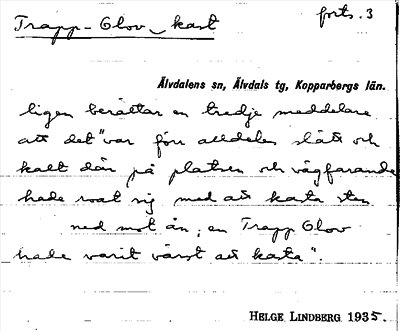 Trapp-Olov_kast
forts. 3
Älvdalens sn, Älvdals tg, Kopparbergs län.
ligen berättar en tredje meddelare
att det "var förr alldeles slätt och
kalt där på platsen och vägfarande
hade roat sig med att kasta sten
ned mot ån; en Trapp Olov
hade varit värst att kasta".
HELGE LINDBERG 1935.